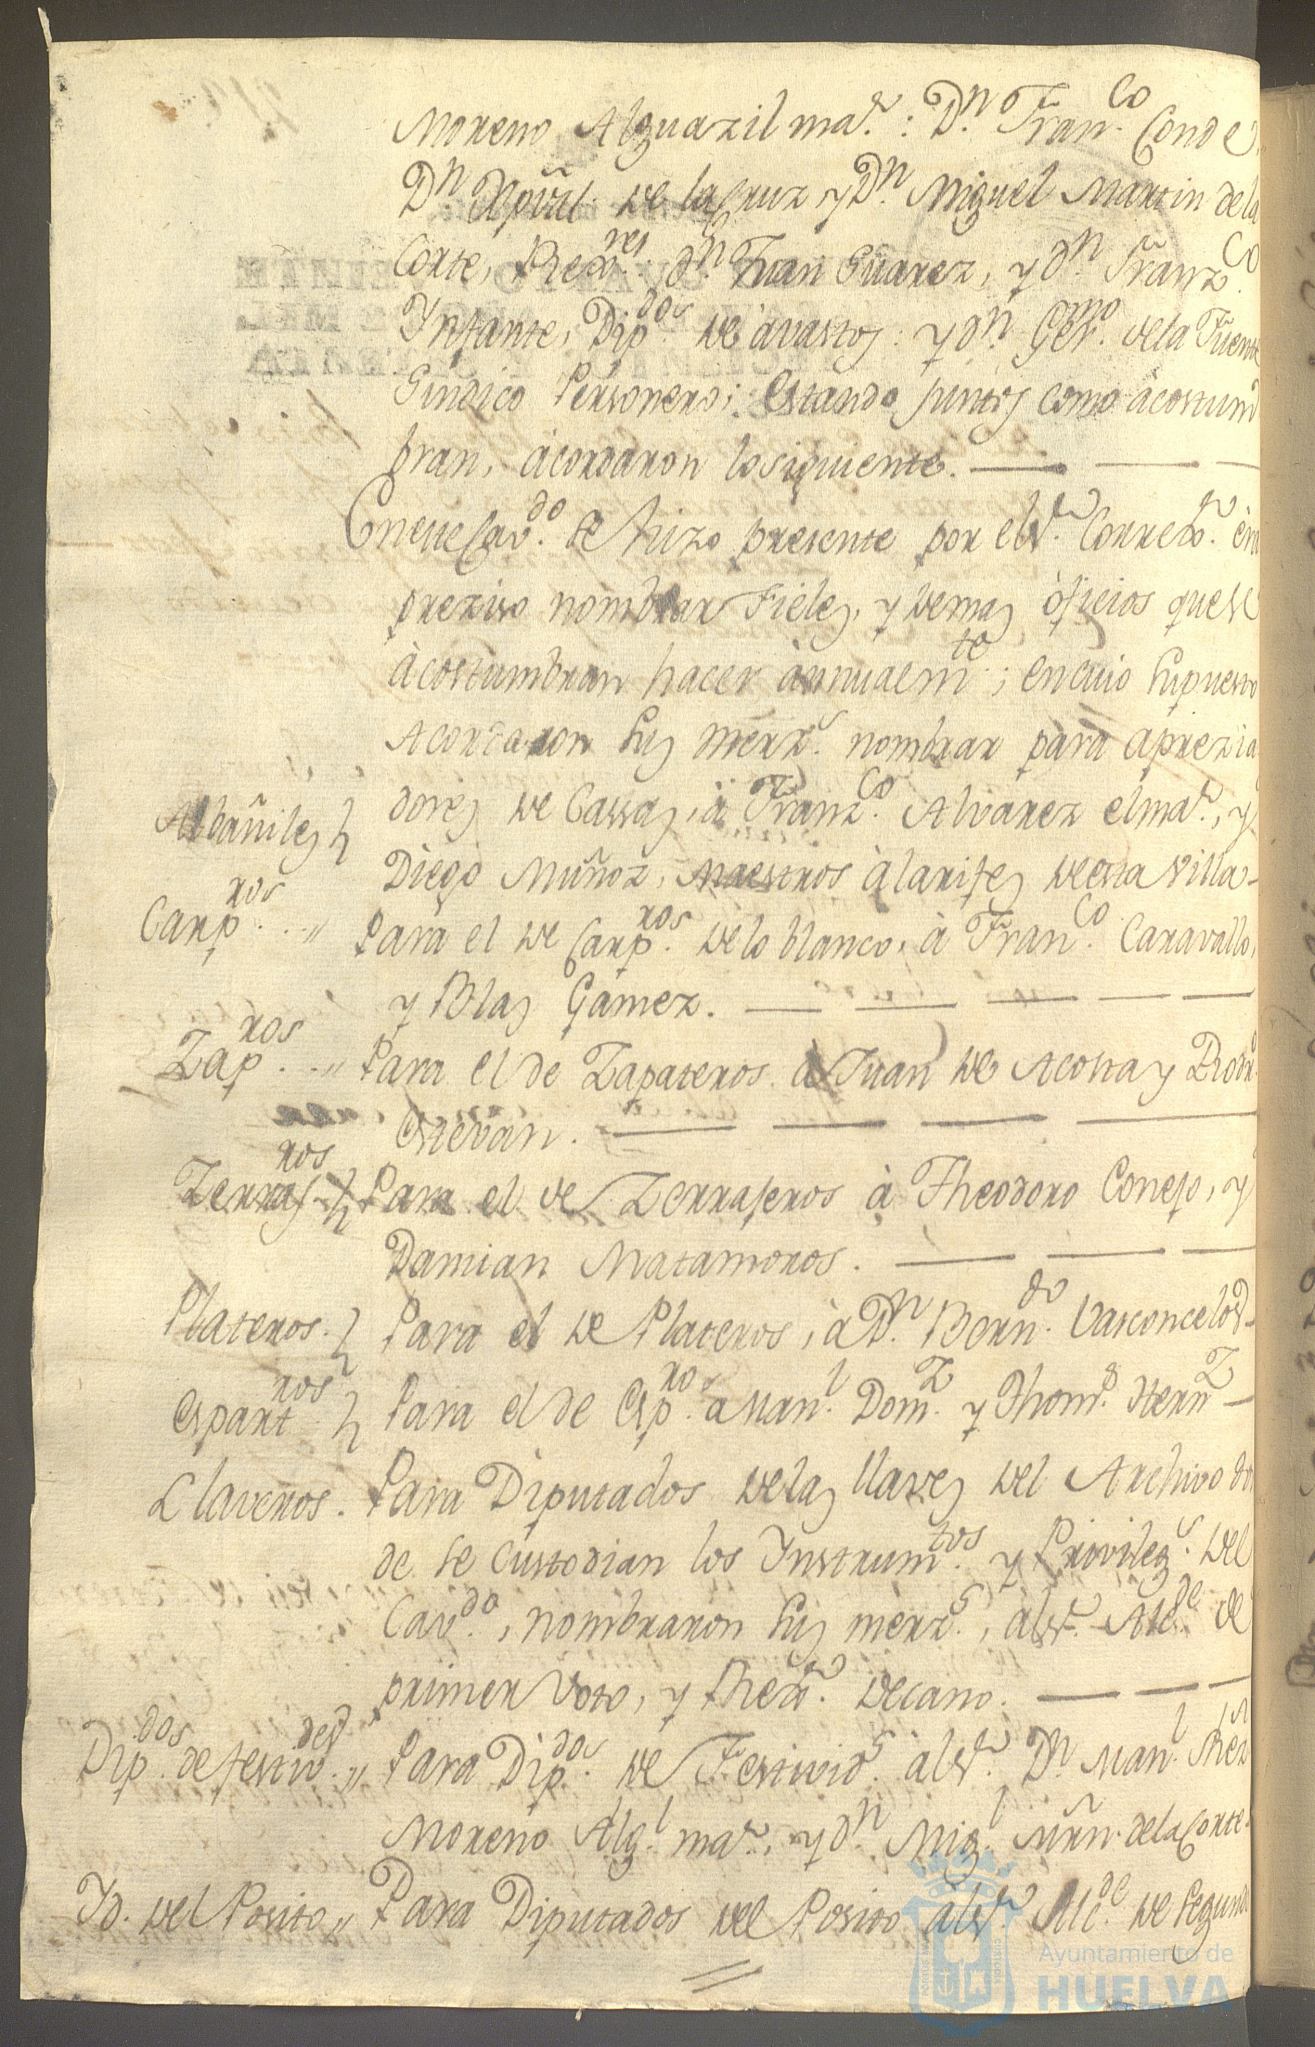 Moreno Alguazil mar. : Dn. Franco. Conde
Dn. Xpval. de la Cruz y Dn. Miguel Martin de la
Corte, Rexres. ; dn. Juan Suarez, y dn. Franzco.
Ynfante, Dipdos. de àvastos : y dn. Germo. de la Fuente
Sindico Personero; Estando juntos como àcostum
bran, àcordaron lo siguiente.
En este Cavdo. se hizo presente por el Sr. Correxr. èra
preziso nombrar Fieles, y demas òficios que se
àcostumbran hacer ànnualmte. ; en cuio supuesto
Acordaron sus merzs. nombrar para aprezia
Albañiles
dores de Cassas, à Franzco. Alvarez el mar., y
Diego Muñoz, Maestros àlarifes de esta Villa
Carpros. Para el de Carpros. de lo blanco, à Franco. Caravallo,
y Blas Gamez.
Zapros. Para el de Zapateros à Juan de Acosta y Pedro
Estevan.
Zerrajros Para el de Zerrajeros à Theodoro Conejo, y
Damian Matamoros.
Plateros. Para el de Plateros, à Dn. Berndo. Vasconcelos
Espartros. Para el de Espros. à Manl. Domz. y Thoms. Hernz
Llaveros. Para Diputados de las llaves del Archivo don
de se Custodian los Ynstrumtos. y Privilegs. del
Cavdo., nombraron sus merzs., àl Sr. Alcde. de
primer Voto, y Rexr. decano.
Dipdos. de festivdes. Para Dipdos. de Festivids. àl Sr. Dn. Manl. Shez
Moreno Algl. mar., y dn. Migl. Mrn. de la Corte.
Yd. del Posito Para Diputados del Posito àl Sr. Alcde. de Segundo
Ayuntamiento de
HUELVA